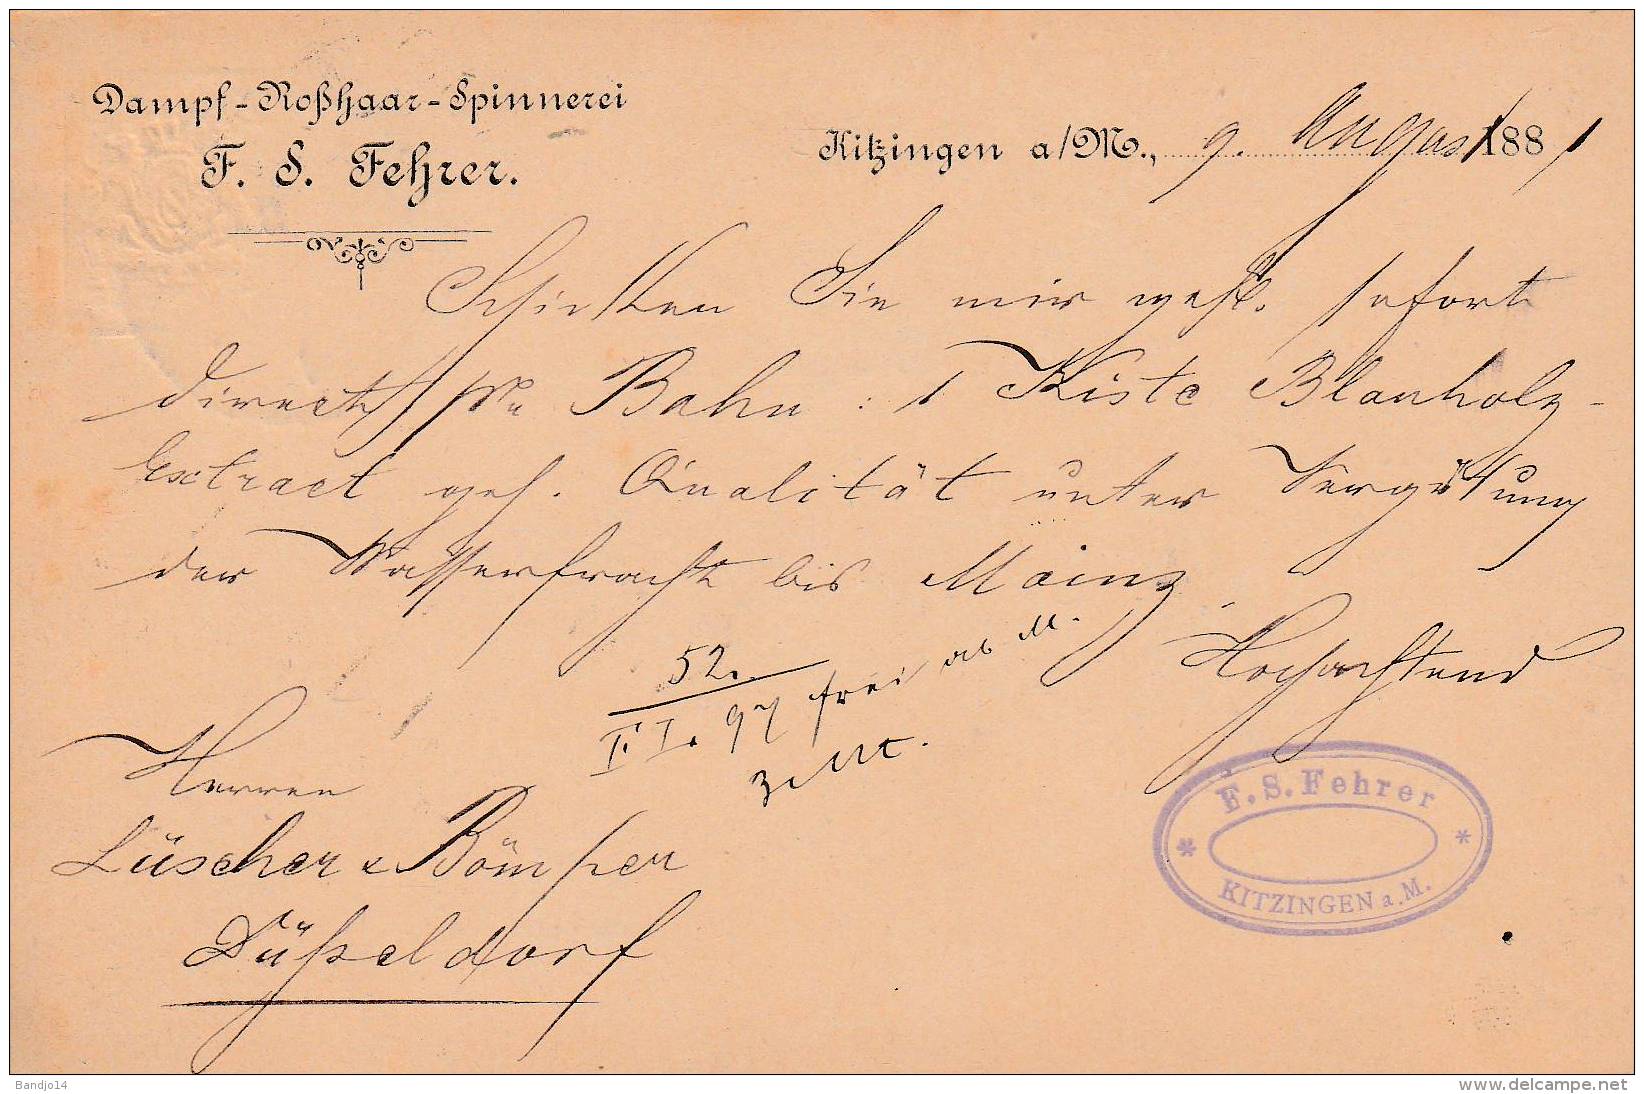 Dampf-Roßhaar-Spinnerei
F. S. Fehrer.
Kitzingen a/M., 9. August 1881
Schicken Sie mir gefl. sofort
direct pr Bahn : 1 Kiste Blauholz-
Extract geh. Qualität unter Vergütung
der Wasserfracht bis Mainz
Hochachtend
52.
I. 97 frei ab M.
Herren
Lüscher & Bömper
Düßeldorf
F. S. Fehrer
* *
KITZINGEN a. M.
Bandjo14
www.delcampe.net